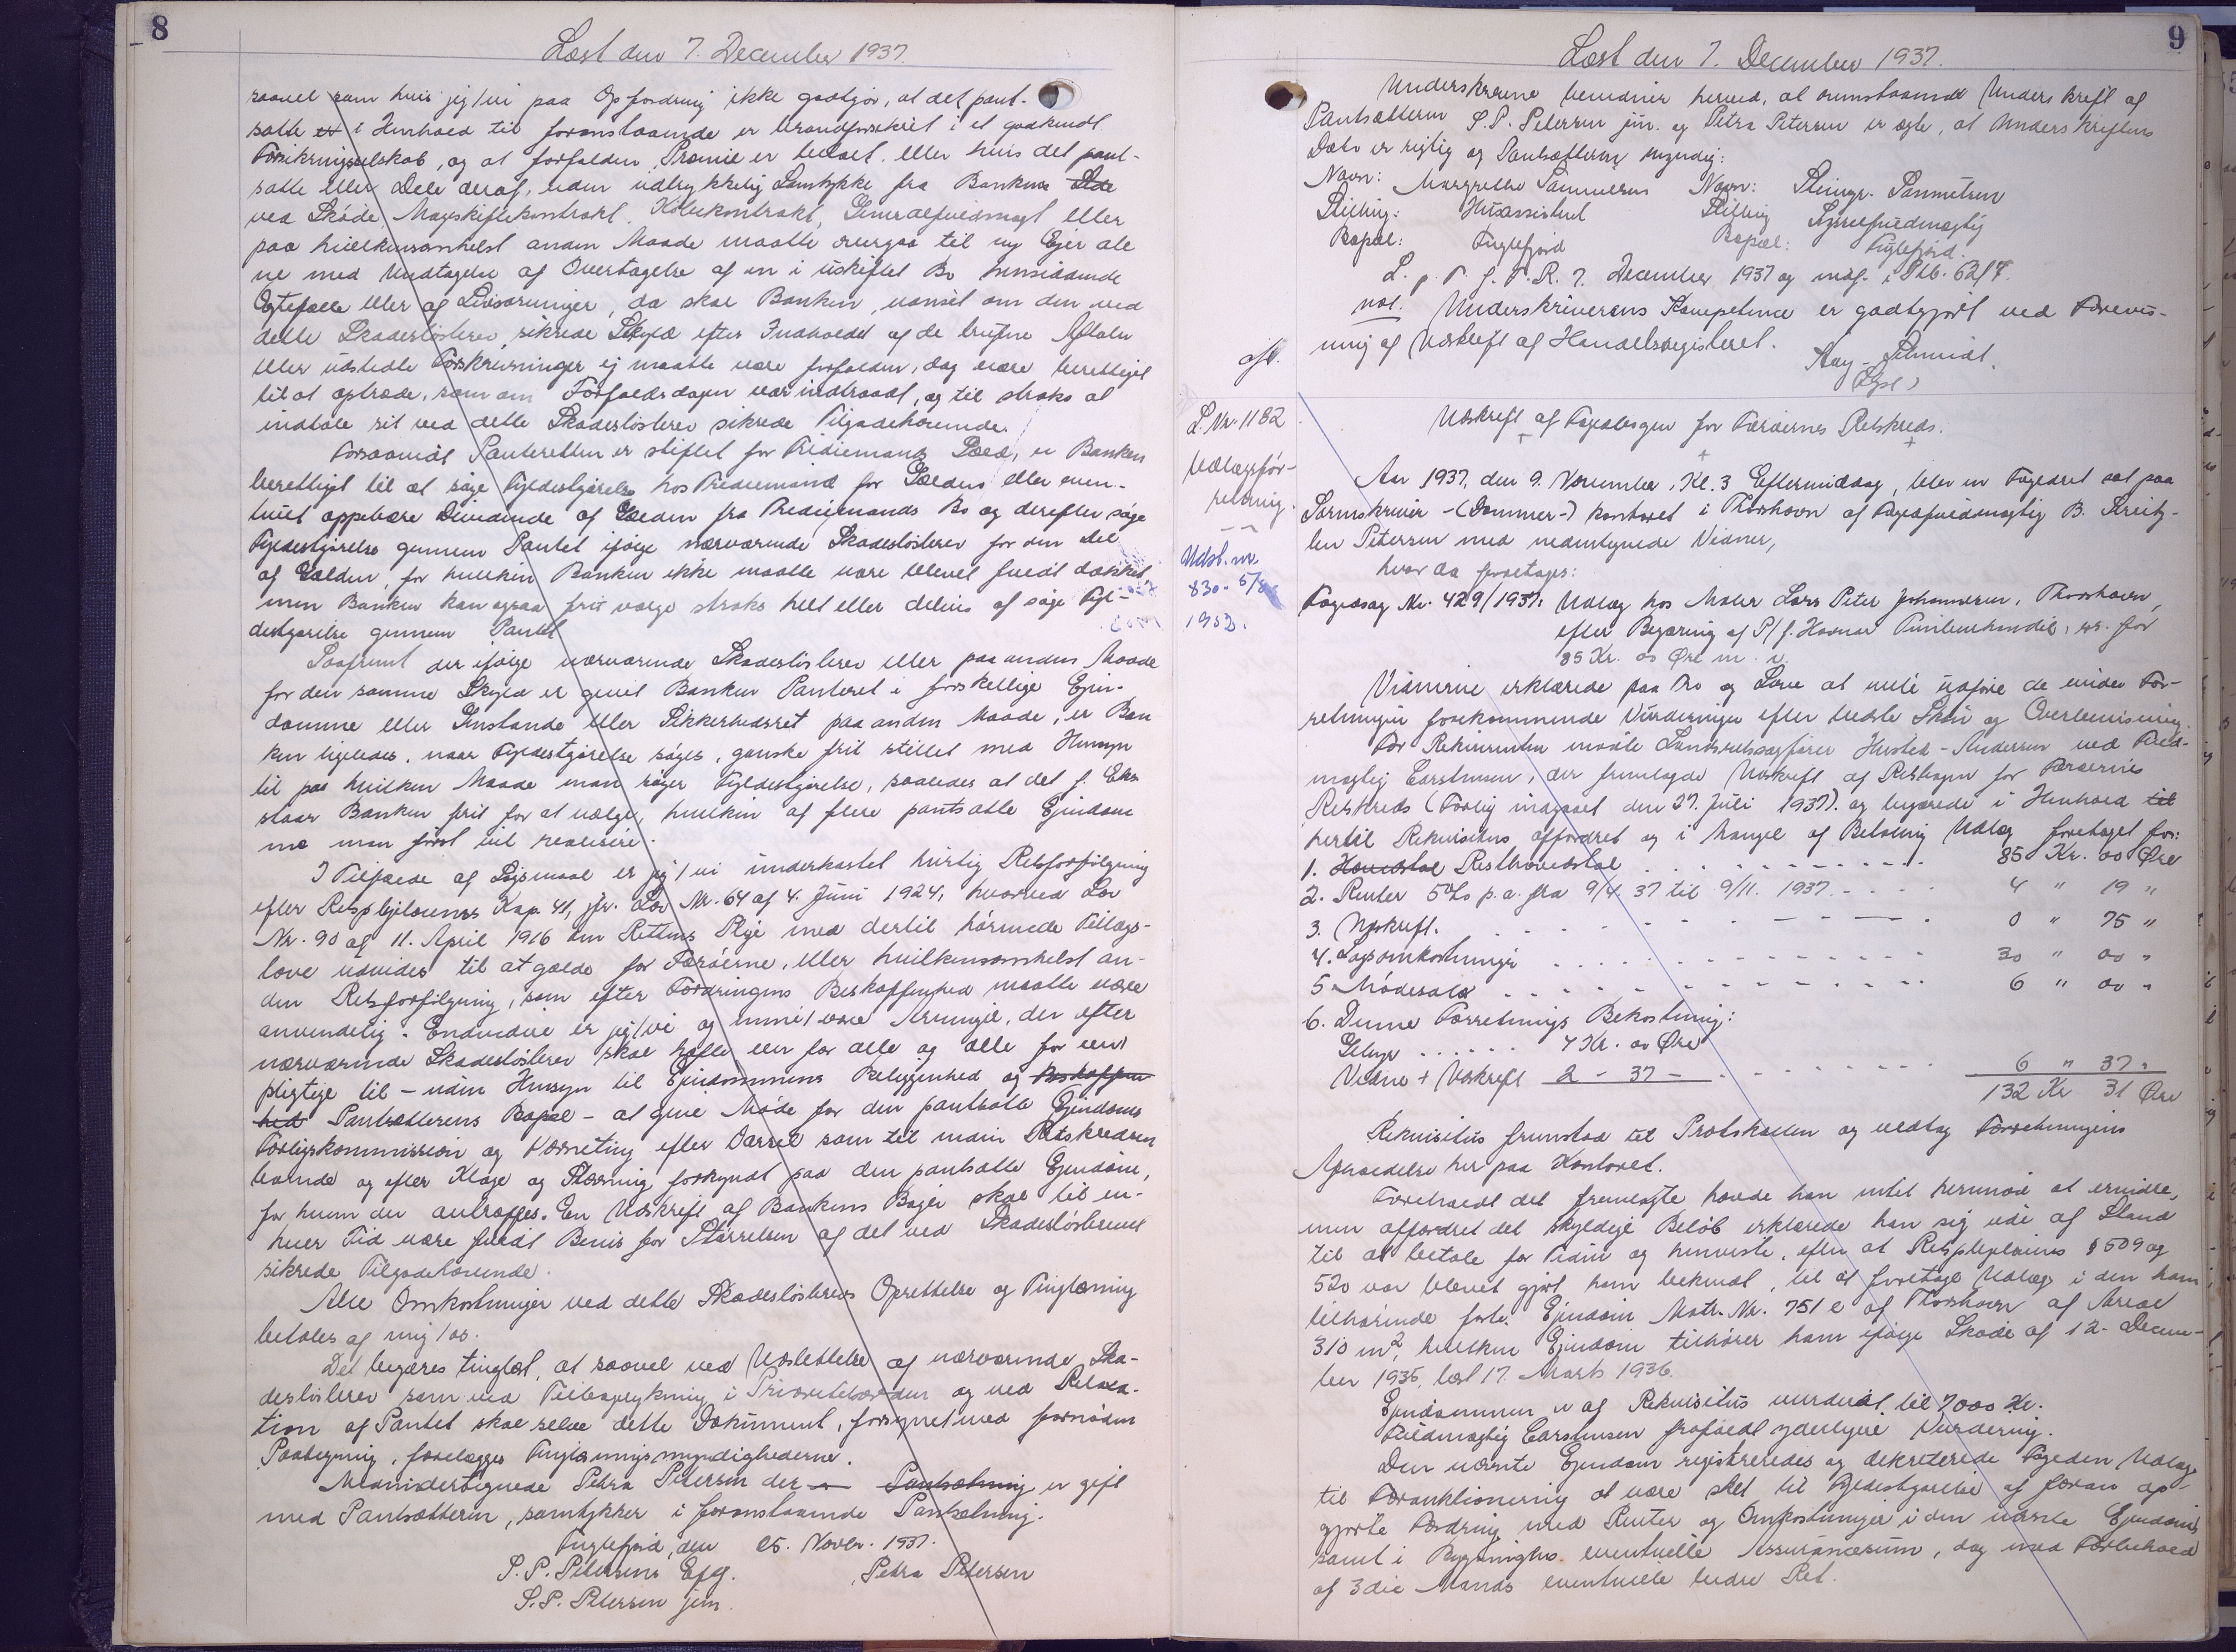 8
Læst den 7. December 1937.
saavel som hvis jeg/vi paa Opfordring ikke godtgør, at det pant-
satte er i Henhold til foranstaaende er brandforsikret i et godkendt
Forsikringsselskab, og at forfalden Præmie er betalt. Eller hvis det pant-
satte eller Dele deraf, uden udtrykkelig Samtykke fra Bankens Side
ved Skøde, Mageskiftekontrakt, Købekontrakt, Generalfuldmagt eller
paa hvilkensomhelst anden Maade maatte overgaa til ny Ejer ale
ne med Undtagelse af Overtagelse af en i uskiftet Bo hensiddende
Ægtefælle eller af Livsarvinger, da skal Banken, uanset om den ved
dette Skadesløsbrev sikrede Skyld efter Indholdet af de trufne Aftaler
eller udstedte Forskrivninger ej maatte være forfalden, dog være berettiget
til at optræde, som om Forfaldsdagen var indtraadt, og til straks at
indtale sit ved dette Skadesløsbrev sikrede Tilgodehavende.
Forsaavidt Panteretten er stiftet for Trediemands Gæld, er Banken
berettiget til at søge Fyldestgørelse hos Trediemand for Gælden eller even-
tuelt oppebære Dividende af Gælden fra Trediemands Bo og derefter søge
Fyldestgørelse gennem Pantet ifølge nærværende Skadesløsbrev for den Del
af Gælden, for hvilken Banken ikke maatte være blevet fuldt dækket,
men Banken kan ogsaa frit vælge straks helt eller delvis at søge Fyl-
destgørelse gennem Pantet
Saafremt der ifølge nærværende Skadesløsbrev eller paa anden Maade
for den samme Skyld er givet Banken Panteret i forskellige Ejen-
domme eller Genstande eller Sikkerhedsret paa anden Maade, er Ban
ken ligeledes, naar Fyldestgørelse søges, ganske frit stillet med Hensyn
til paa hvilken Maade man søger Fyldestgørelse, saaledes at det f. Eks
staar Banken frit for at vælge, hvilken af flere pantsatte Ejendom
me man først vil realisere.
I Tilfælde af Søgsmaal er jeg/vi underkastet hurtig Retsforfølgning
efter Resplejelovens Kap. 41, jfr. Lov Nr. 64 af 4. Juni 1924, hvorved Lov
Nr. 90 af 11. April 1916 om Rettens Pleje med dertil hørende Tillægs-
love udvides til at gælde for Færøerne, eller hvilkensomhelst an-
den Retsforfølgning, som efter Fordringens Beskaffenhed maatte være
anvendelig. Endvidere er jeg/vi og mine/vore Arvinger, der efter
nærværende Skadesløsbrev skal hæfte een for alle og alle for een
pligtige til - uden Hensyn til Ejendommens Beliggenhed og Beskaffen
hed Pantsætterens Bopæl - at give Møde for den pantsatte Ejendoms
Forligskommission og Værneting efter Varsel som til inden Retskredsen
boende og efter Klage og Stævning forkyndt paa den pantsatte Ejendom,
for hvem der antræffes. En Udskrift af Bankens Bøger skal til en-
hver Tid være fuldt Bevis for Størrelsen af det ved Skadesløsbrevet
sikrede Tilgodehavende.
Alle Omkostninger ved dette Skadesløsbrevs Oprettelse og Tinglæsning
betales af mig/os.
Det begæres tinglæst, at saavel ved Udslettelse af nærværende Ska-
desløsbrev som ved Tilbagerykning i Prioritetsordenen og ved Relaxa-
tion af Pantet skal selve dette Dokument, forsynet med fornøden
Paategning, forelægges Tinglæsningsmyndighederne.
Medundertegnede Petra Petersen der Pantsætning er gift
med Pantsætteren, samtykker i foranstaaende Pantsætning.
Fuglefjord, den 25. Novbr. 1937.
S. P. Petersens Eftf. Petra Petersen
S. P. Petersen jun.
9
Læst den 7. December 1937.
Underskrevne bevidner herved, at ovenstaaende Underskrift af
Pantsætteren S. P. Petersen jun. og Petra Petersen er ægte, at Underskriftens
Dato er rigtig og Pantsætteren myndig:
Navn: Margrethe Samuelsen Navn: Steingr. Samuelsen
Stilling: Husassistent Stilling Sysselfuldmægtig
Bopæl: Fuglefjord Bopæl: Fuglefjord.
L. p. T. f. F. R. 7. December 1937 og indf. i Ptb.
not. Underskriverens Kompetence er godtgjort ved Forevis-
ning af Udskrift af Handelsregisteret.
afl.
Aage Schmidt.
L. Nr. 1182
Udlægsfor-
retning.
Udsl. m.
830- 5/8
1952.
Udskrift af Fogedbogen for Færøernes Retskreds.
Aar 1937, den 9. November, Kl. 3 Eftermiddag, blev en Fogedret sat paa
Sorenskriver-(Dommer-) Kontoret i Thorshavn af Fogedfuldmægtig B. Kreitz-
len Petersen med nedentegnede Vidner,
hvor da foretoges:
Fogedsag Nr. 429/1937: Udlæg hos Maler Lars Peter Johannesen, Thorshavn,
efter Begæring af P/f. Havnar Timburhandil, her. for
85 Kr. 00 Øre m. v.
Vidnerne erklærede paa Tro og Love at ville udføre de under For-
retningen forekommende Vurderinger efter bedste Skøn og Overbevisning.
For Rekvirenten mødte Landsretssagfører Husted-Andersen ved Fuld-
mægtig Carstensen, der fremlagde Udskrift af Retsbogen for Færøernes
Retskreds (Forlig indgaaet den 27. Juli 1937) og begærede i Henhold til
hertil Rekvisitus affordret og i Mangel af Betaling Udlæg foretaget for:
1. Hovedstol Resthovedstol . . . . . 85 Kr. 00 Øre
2. Renter 5% p. a. fra 9/4. 37 til 9/11. 1937. . . . . 4 " 19 "
3. Udskrift. . . . . . 0 " 75 "
4. Sagsomkostninger . . . . . 30 " 00 "
5 Mødesalær . . . . . 6 " 00 "
6. Denne Forretnings Bekostning:
Gebyr . . . . . . 4 Kr. 00 Øre
Vidne + Udskrift 2 - 37 - . . . . . 6 " 37 "
132 Kr 31 Øre
Rekvisitus fremstod til Protokollen og vedtog Forretningens
Afholdelse her paa Kontoret.
Foreholdt det fremlagte havde han intet herimod at erindre,
men affordret det skyldige Beløb erklærede han sig ude af Stand
til at betale for Tiden og henviste, efter at Resplejelovens § 509 og
520 var blevet gjort ham bekendt, til at foretage Udlæg i den ham
tilhørende faste Ejendom Matr. Nr. 751 e af Thorshavn af Areal
310 m², hvilken Ejendom tilhører ham ifølge Skøde af 12. Decem-
ber 1935, læst 17. Marts 1936.
Ejendommen er af Rekvisitus vurderet til 7000 Kr.
Fuldmægtig Carstensen frafaldt yderligere Vurdering.
Den nævnte Ejendom registreredes og dekreterede Fogeden Udlæg
til Forauktionering at være sket til Fyldestgørelse af foran op-
gjorte Fordring med Renter og Omkostninger i den nævnte Ejendom,
samt i Bygningens eventuelle Assurancesum, dog med Forbehold
af 3die Mands eventuelle bedre Ret.